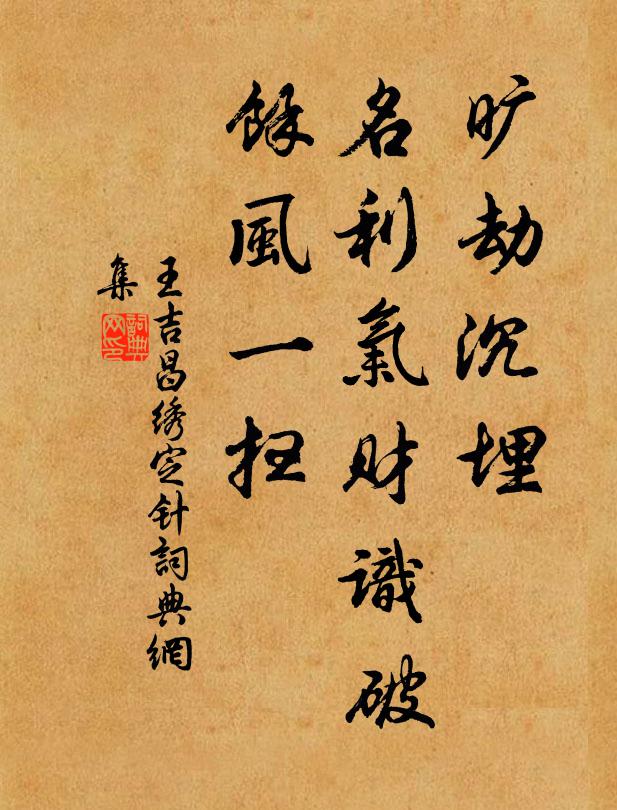 旷劫沉埋
名利氣财識破
餘風一扫
王吉昌绣定针詞典網
集
詞典
网印